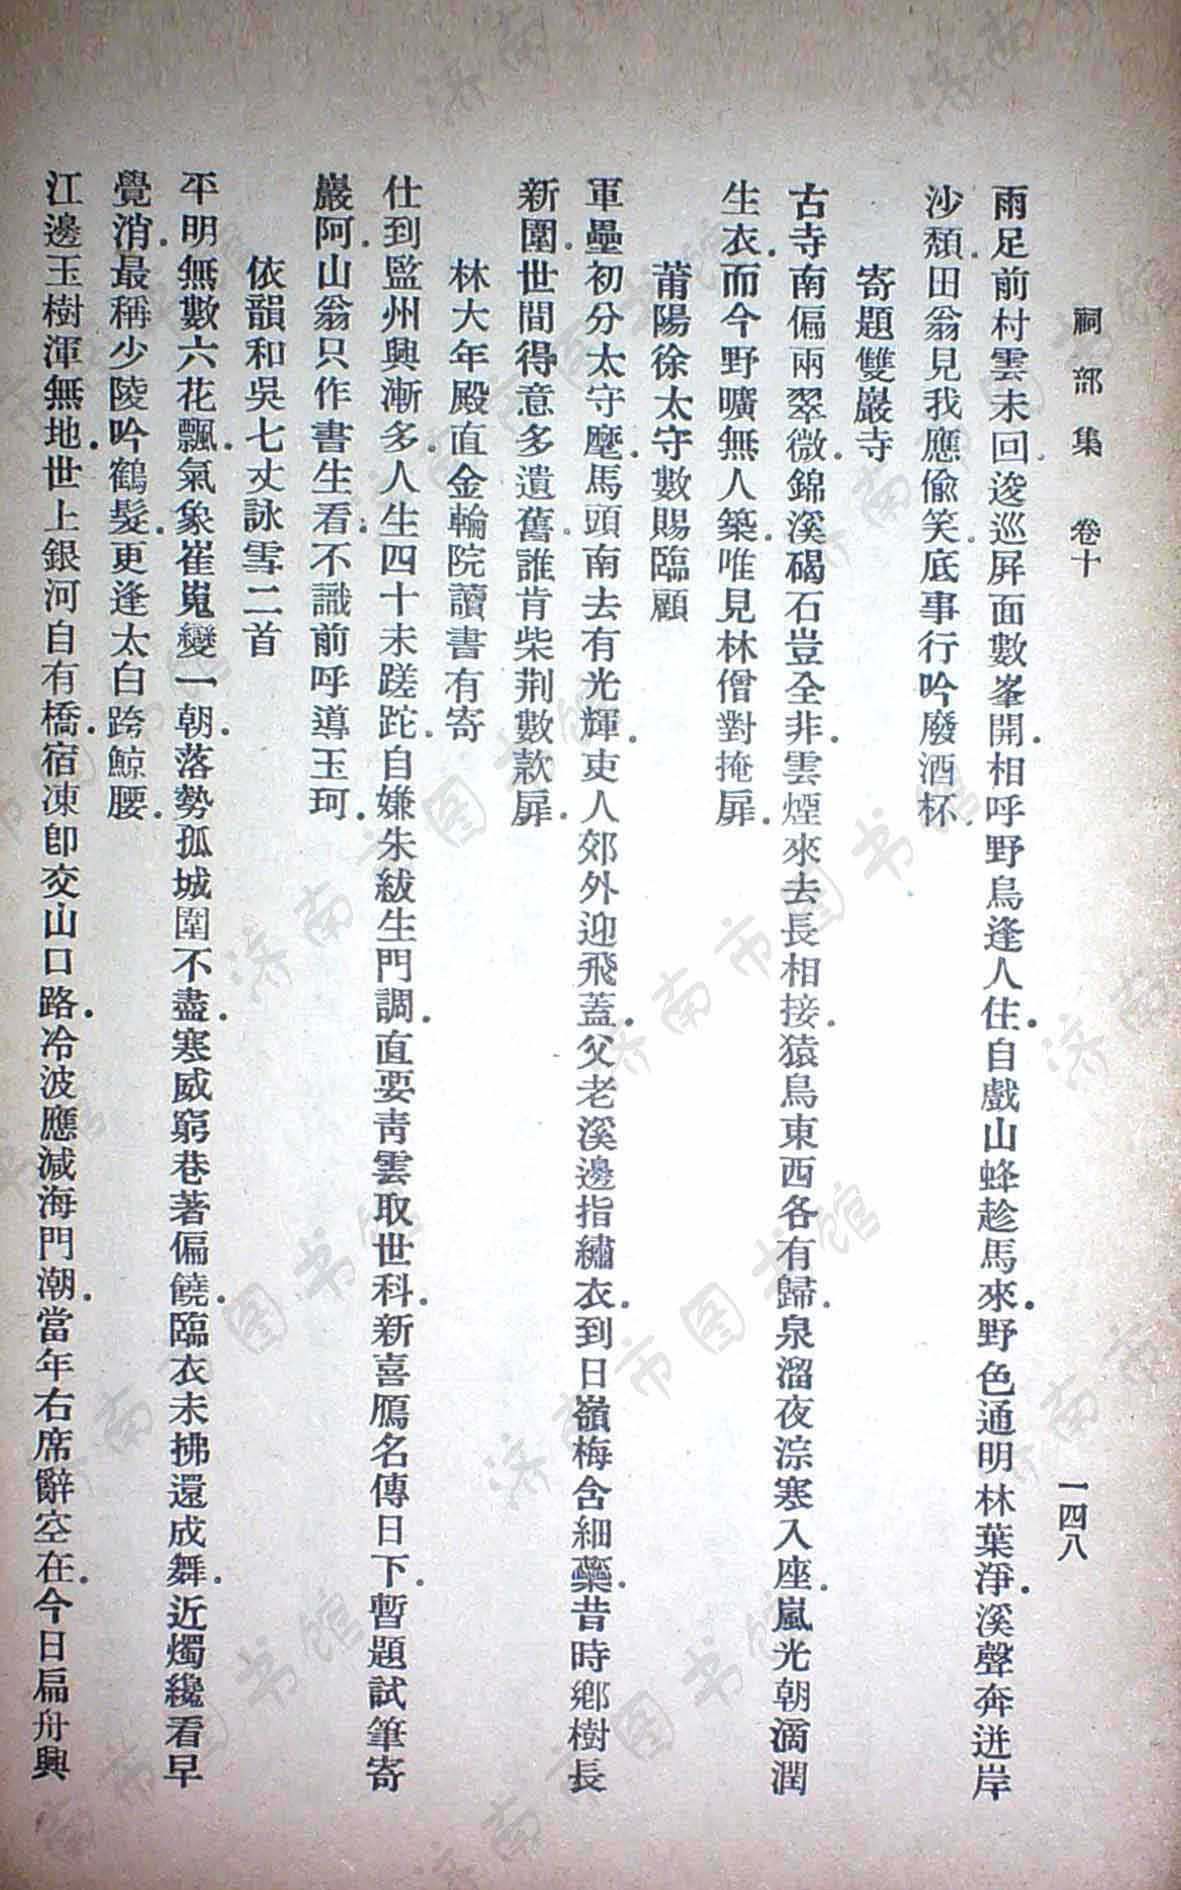 祠部集 卷十 一四八
雨足前村雲未回。逡巡屏面數峯開。相呼野鳥逢人住。自戲山蜂趁馬來。野色通明林葉淨。溪聲奔迸岸
沙頹。田翁見我應偷笑。底事行吟廢酒杯。
寄題雙巖寺
古寺南偏兩翠微。錦溪碣石豈全非。雲煙來去長相接。猿鳥東西各有歸。泉溜夜淙寒入座。嵐光朝滴潤
生衣。而今野曠無人築。唯見林僧對掩扉。
莆陽徐太守數賜臨顧
軍壘初分太守麾。馬頭南去有光輝。吏人郊外迎飛蓋。父老溪邊指繡衣。到日嶺梅含細蘂。昔時鄉樹長
新圍。世間得意多遺舊。誰肯柴荆數款扉。
林大年殿直金輪院讀書有寄
仕到監州興漸多。人生四十未蹉跎。自嫌朱紱生門調。直要靑雲取世科。新喜鴈名傳日下。暫題試筆寄
巖阿。山翁只作書生看。不識前呼導玉珂。
依韻和吳七丈詠雪二首
平明無數六花飄。氣象崔嵬變一朝。落勢孤城圍不盡。寒威窮巷著偏饒。臨衣未拂還成舞。近燭纔看早
覺消。最稱少陵吟鶴髮。更逢太白跨鯨腰。
江邊玉樹渾無地。世上銀河自有橋。宿凍卽交山口路。冷波應減海門潮。當年右席辭空在。今日扁舟興